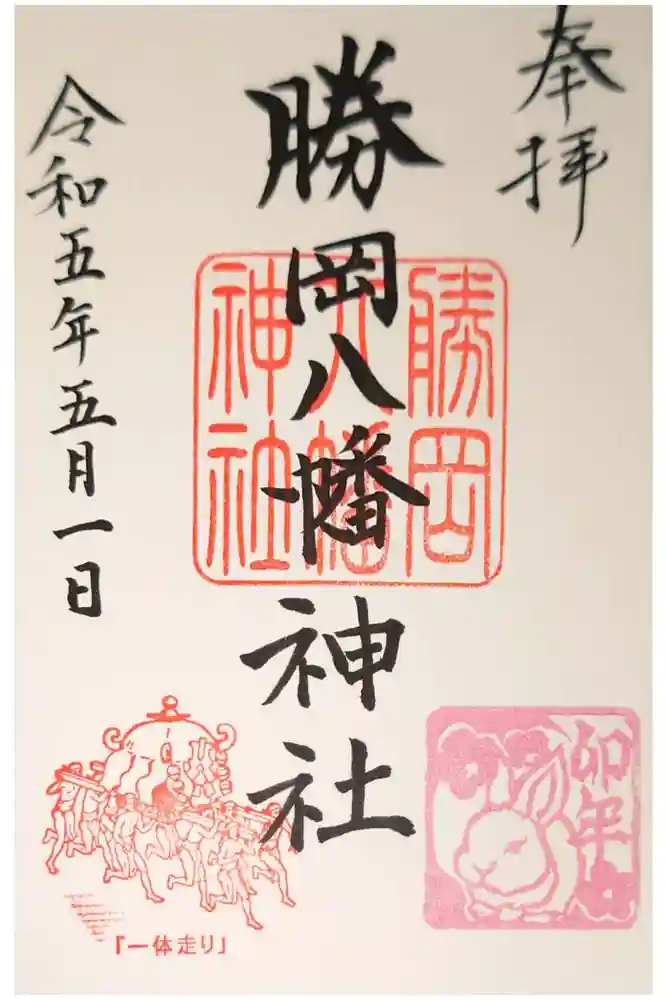 奉拝
勝岡八幡神社
勝岡
八幡
神社
令和五年五月一日
卯年
「一体走り」